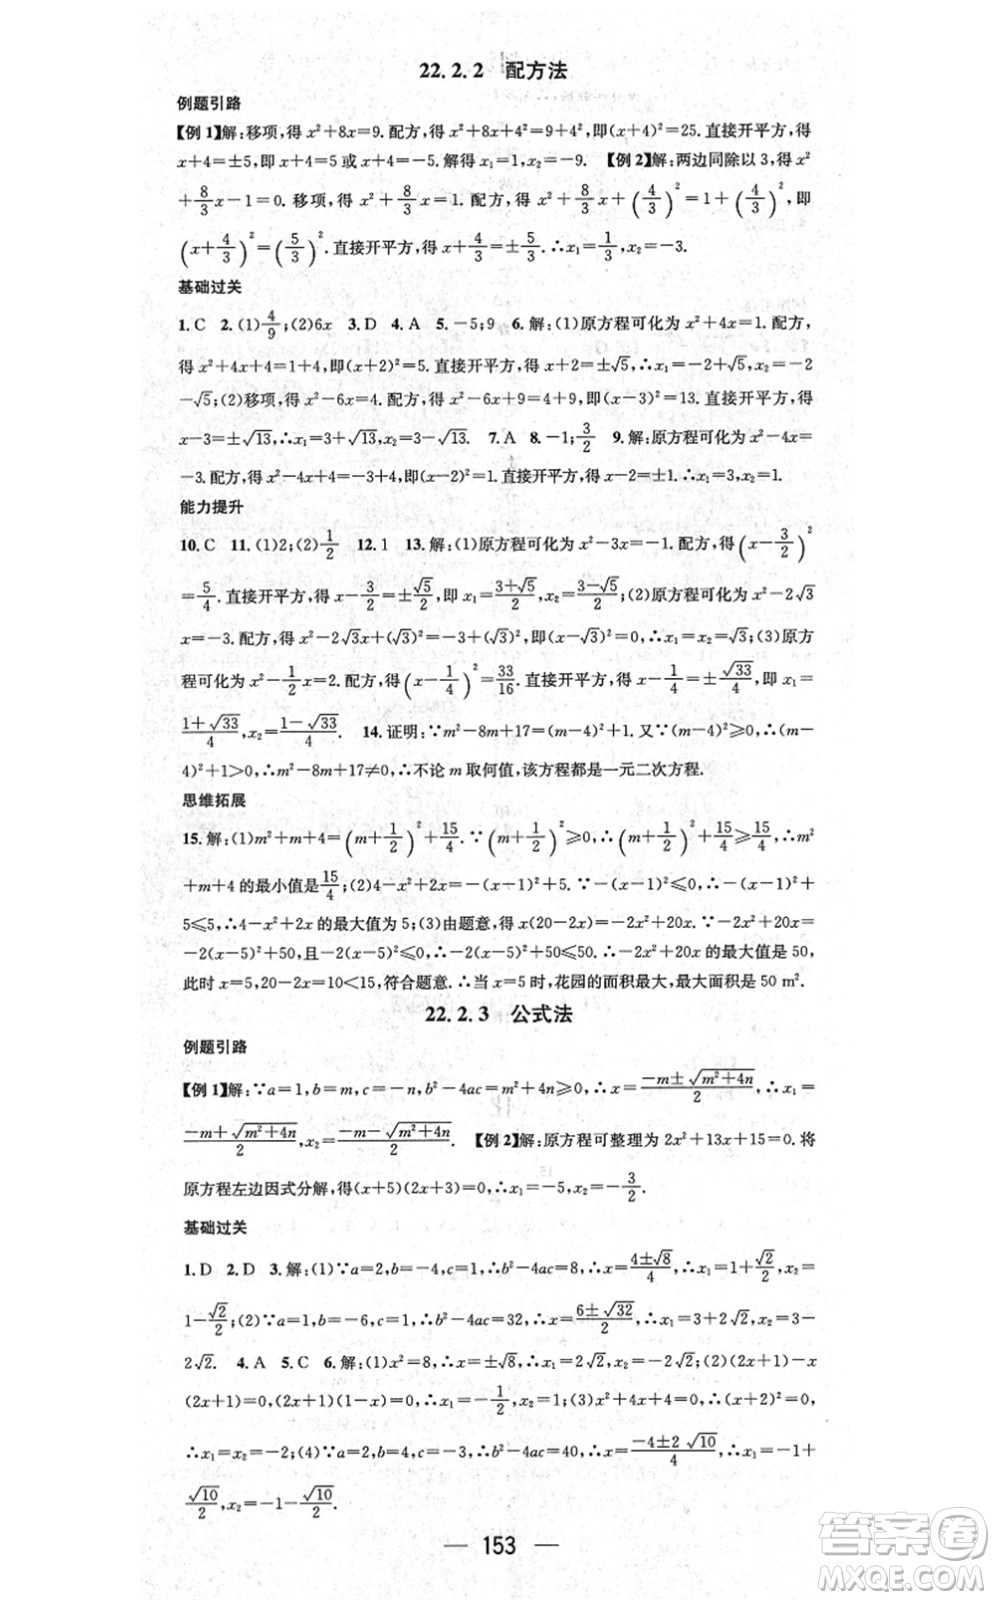 22.2.2 配方法
例题引路
【例1】解:移项,得 x²+8x=9.配方,得 x²+8x+4²=9+4²,即(x+4)²=25.直接开平方,得
x+4=±5,即 x+4=5 或 x+4=-5.解得 x₁=1,x₂=-9. 【例2】解:两边同除以 3,得 x²
+8/3x-1=0.移项,得 x²+8/3x=1.配方,得 x²+8/3x+(4/3)²=1+(4/3)²,即
(x+4/3)²=(5/3)².直接开平方,得 x+4/3=±5/3.∴x₁=1/3,x₂=-3.
基础过关
1.C 2.(1)4/9;(2)6x 3.D 4.A 5.-5;9 6.解:(1)原方程可化为 x²+4x=1.配方,
得 x²+4x+4=1+4,即(x+2)²=5.直接开平方,得 x+2=±√5,∴x₁=-2+√5,x₂=-2
-√5;(2)移项,得 x²-6x=4.配方,得 x²-6x+9=4+9,即(x-3)²=13.直接开平方,得
x-3=±√13,∴x₁=3+√13,x₂=3-√13. 7.A 8.-1;3/2 9.解:原方程可化为 x²-4x=
-3.配方,得 x²-4x+4=-3+4,即(x-2)²=1.直接开平方,得 x-2=±1.∴x₁=3,x₂=1.
能力提升
10.C 11.(1)2;(2)1/2 12.1 13.解:(1)原方程可化为 x²-3x=-1.配方,得(x-3/2)²
=5/4.直接开平方,得 x-3/2=±√5/2,即 x₁=(3+√5)/2,x₂=(3-√5)/2;(2)原方程可化为 x²-2√3
x=-3.配方,得 x²-2√3x+(√3)²=-3+(√3)²,即(x-√3)²=0,∴x₁=x₂=√3;(3)原方
程可化为 x²-1/2x=2.配方,得(x-1/4)²=33/16.直接开平方,得 x-1/4=±√33/4,即 x₁=
(1+√33)/4,x₂=(1-√33)/4. 14.证明:∵m²-8m+17=(m-4)²+1.又∵(m-4)²⩾0,∴(m-
4)²+1>0,∴m²-8m+17≠0,∴不论 m 取何值,该方程都是一元二次方程.
思维拓展
15.解:(1)m²+m+4=(m+1/2)²+15/4.∵(m+1/2)²⩾0,∴(m+1/2)²+15/4⩾15/4,∴m²
+m+4 的最小值是15/4;(2)4-x²+2x=-(x-1)²+5.∵-(x-1)²⩽0,∴-(x-1)²+
5⩽5,∴4-x²+2x 的最大值为 5;(3)由题意,得 x(20-2x)=-2x²+20x.∵-2x²+20x=
-2(x-5)²+50,且-2(x-5)²⩽0,∴-2(x-5)²+50⩽50,∴-2x²+20x 的最大值是 50,
此时 x=5,20-2x=10<15,符合题意.∴当 x=5 时,花园的面积最大,最大面积是 50 m².
22.2.3 公式法
例题引路
【例1】解:∵a=1,b=m,c=-n,b²-4ac=m²+4n⩾0,∴x=(-m±√(m²+4n))/2,∴x₁=
(-m+√(m²+4n))/2,x₂=(-m-√(m²+4n))/2. 【例2】解:原方程可整理为 2x²+13x+15=0.将
原方程左边因式分解,得(x+5)(2x+3)=0,∴x₁=-5,x₂=-3/2.
基础过关
1.D 2.D 3.解:(1)∵a=2,b=-4,c=1,∴b²-4ac=8,∴x=(4±√8)/4,∴x₁=1+√2/2,x₂=
1-√2/2;(2)∵a=1,b=-6,c=1,∴b²-4ac=32,∴x=(6±√32)/2,∴x₁=3+2√2,x₂=3-
2√2. 4.A 5.C 6.解:(1)x²=8,∴x=±√8,∴x₁=2√2,x₂=-2√2;(2)(2x+1)-x
(2x+1)=0,(2x+1)(1-x)=0,∴x₁=-1/2,x₂=1;(3)x²+4x+4=0,∴(x+2)²=0,
∴x₁=x₂=-2;(4)∵a=2,b=4,c=-3,∴b²-4ac=40,∴x=(-4±2√10)/4,∴x₁=-1+
√10/2,x₂=-1-√10/2.
— 153 —
答案卷
MXQE.COM